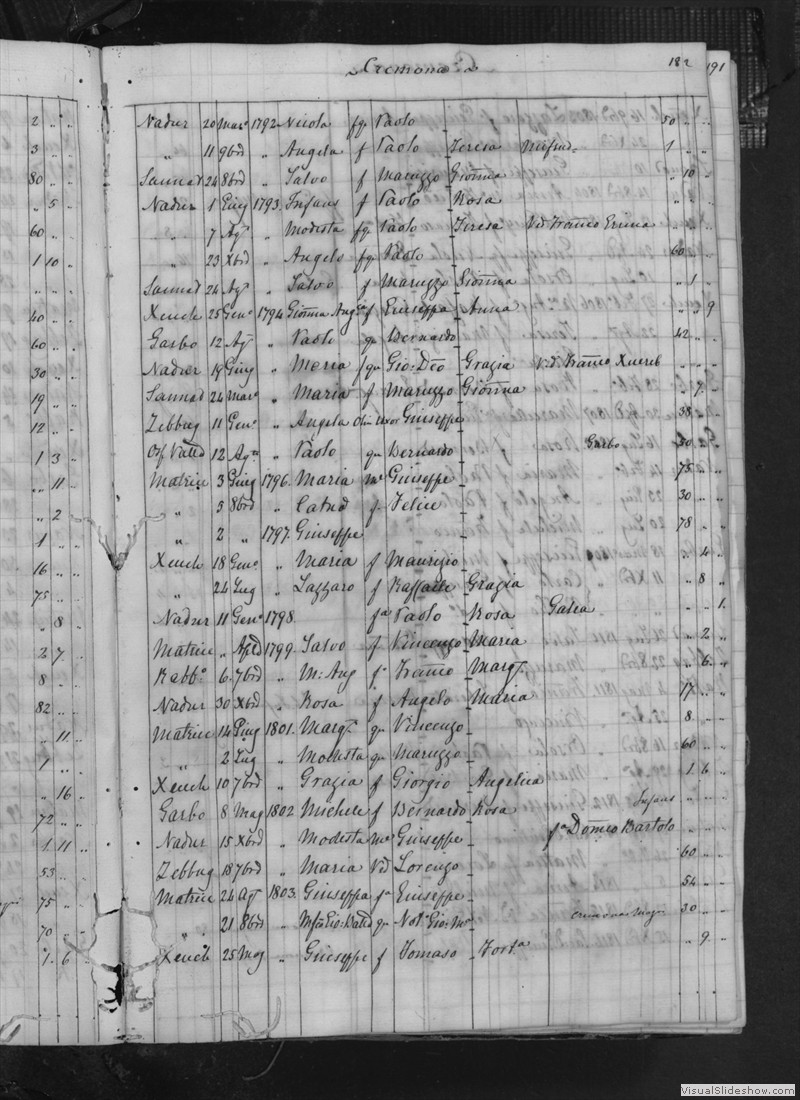 Cremona
182 191
2 " " Nadur 20 Mar° 1792 Nicola fqr Paolo 50 " "
3 " " " 11 9brè " Angela f Paolo Teresa Mifsud 1 " "
80 " " Sannat 24 8brè " Salvo f Maruzzo Gioñna " 10 "
" 5 " Nadur 1 Giug 1793 Infans f Paolo Rosa " " "
60 " " " 7 Ag° " Modesta fqr Paolo Teresa Vid Franco " " "
1 10 " " 23 Xbrè " Angelo fqr Paolo 60 " "
" " " Sannat 24 Ag° " Salvo f Maruzzo Gioñna " 1 "
40 " " Xeuch 25 Gen° 1794 Gioñna f Giuseppe Anna " 3 9
60 " " Garbo 12 Ag° " Paolo qr Bernardo 42 " "
30 " " Nadur 19 Giug " Maria fqr Gio: Grazia vid. Franco Xuereb " " "
19 " " Sannat 24 Mar° " Maria f Maruzzo Gioñna " 9 "
12 " " Zebbug 11 Gen° " Angela Uxor Giuseppe 38 " "
1 3 " 12 " Paolo qr Bernardo Garbo 50 " "
" 11 " Matrice 3 Giug 1796 Maria Giuseppe 75 " "
" 2 " " 3 8brè " f Felice 30 " "
1 " " " 2 " 1797 Giuseppe 78 " "
16 " " Xeuch 18 Gen° " Maria f Maurizio " 4 "
75 " " " 24 Lug " Lazzaro f Raffaele Grazia " 8 "
" 8 " Nadur 11 Gen° 1798 fa Paolo Rosa Galea " " 1
2 7 " Matrice " 1799 Salvo f Vincenzo Maria " 2 "
8 " " Rabb° 6 7brè " M: Ang f Franco Marg° " 6 "
82 " " Nadur 30 Xbrè " Rosa f Angelo Maria 17 " "
" 11 " Matrice 14 Giug 1801 Marg° qr Vincenzo 8 " "
1 " " " 2 Lug " Modesta qr Maruzzo 60 " "
" 16 " Xeuch 10 7brè " Grazia f Giorgio Angelica 1 6 "
72 " " Garbo 8 Mag 1802 Michele f Bernardo Rosa Infans " " "
1 11 " Nadur 15 Xbrè " Modesta Giuseppe fa Domco Bartolo " " "
53 " " Zebbug 18 7brè " Maria Vid Lorenzo 60 " "
75 " " Matrice 24 Ag° 1803 Giuseppa fa Giuseppe 54 " "
70 " " " 21 8brè " qr Not° Gio: Mª 30 " "
1 6 " Xeuch 25 Mag " Giuseppe f Tomaso " 9 "
VisualSlideshow.com